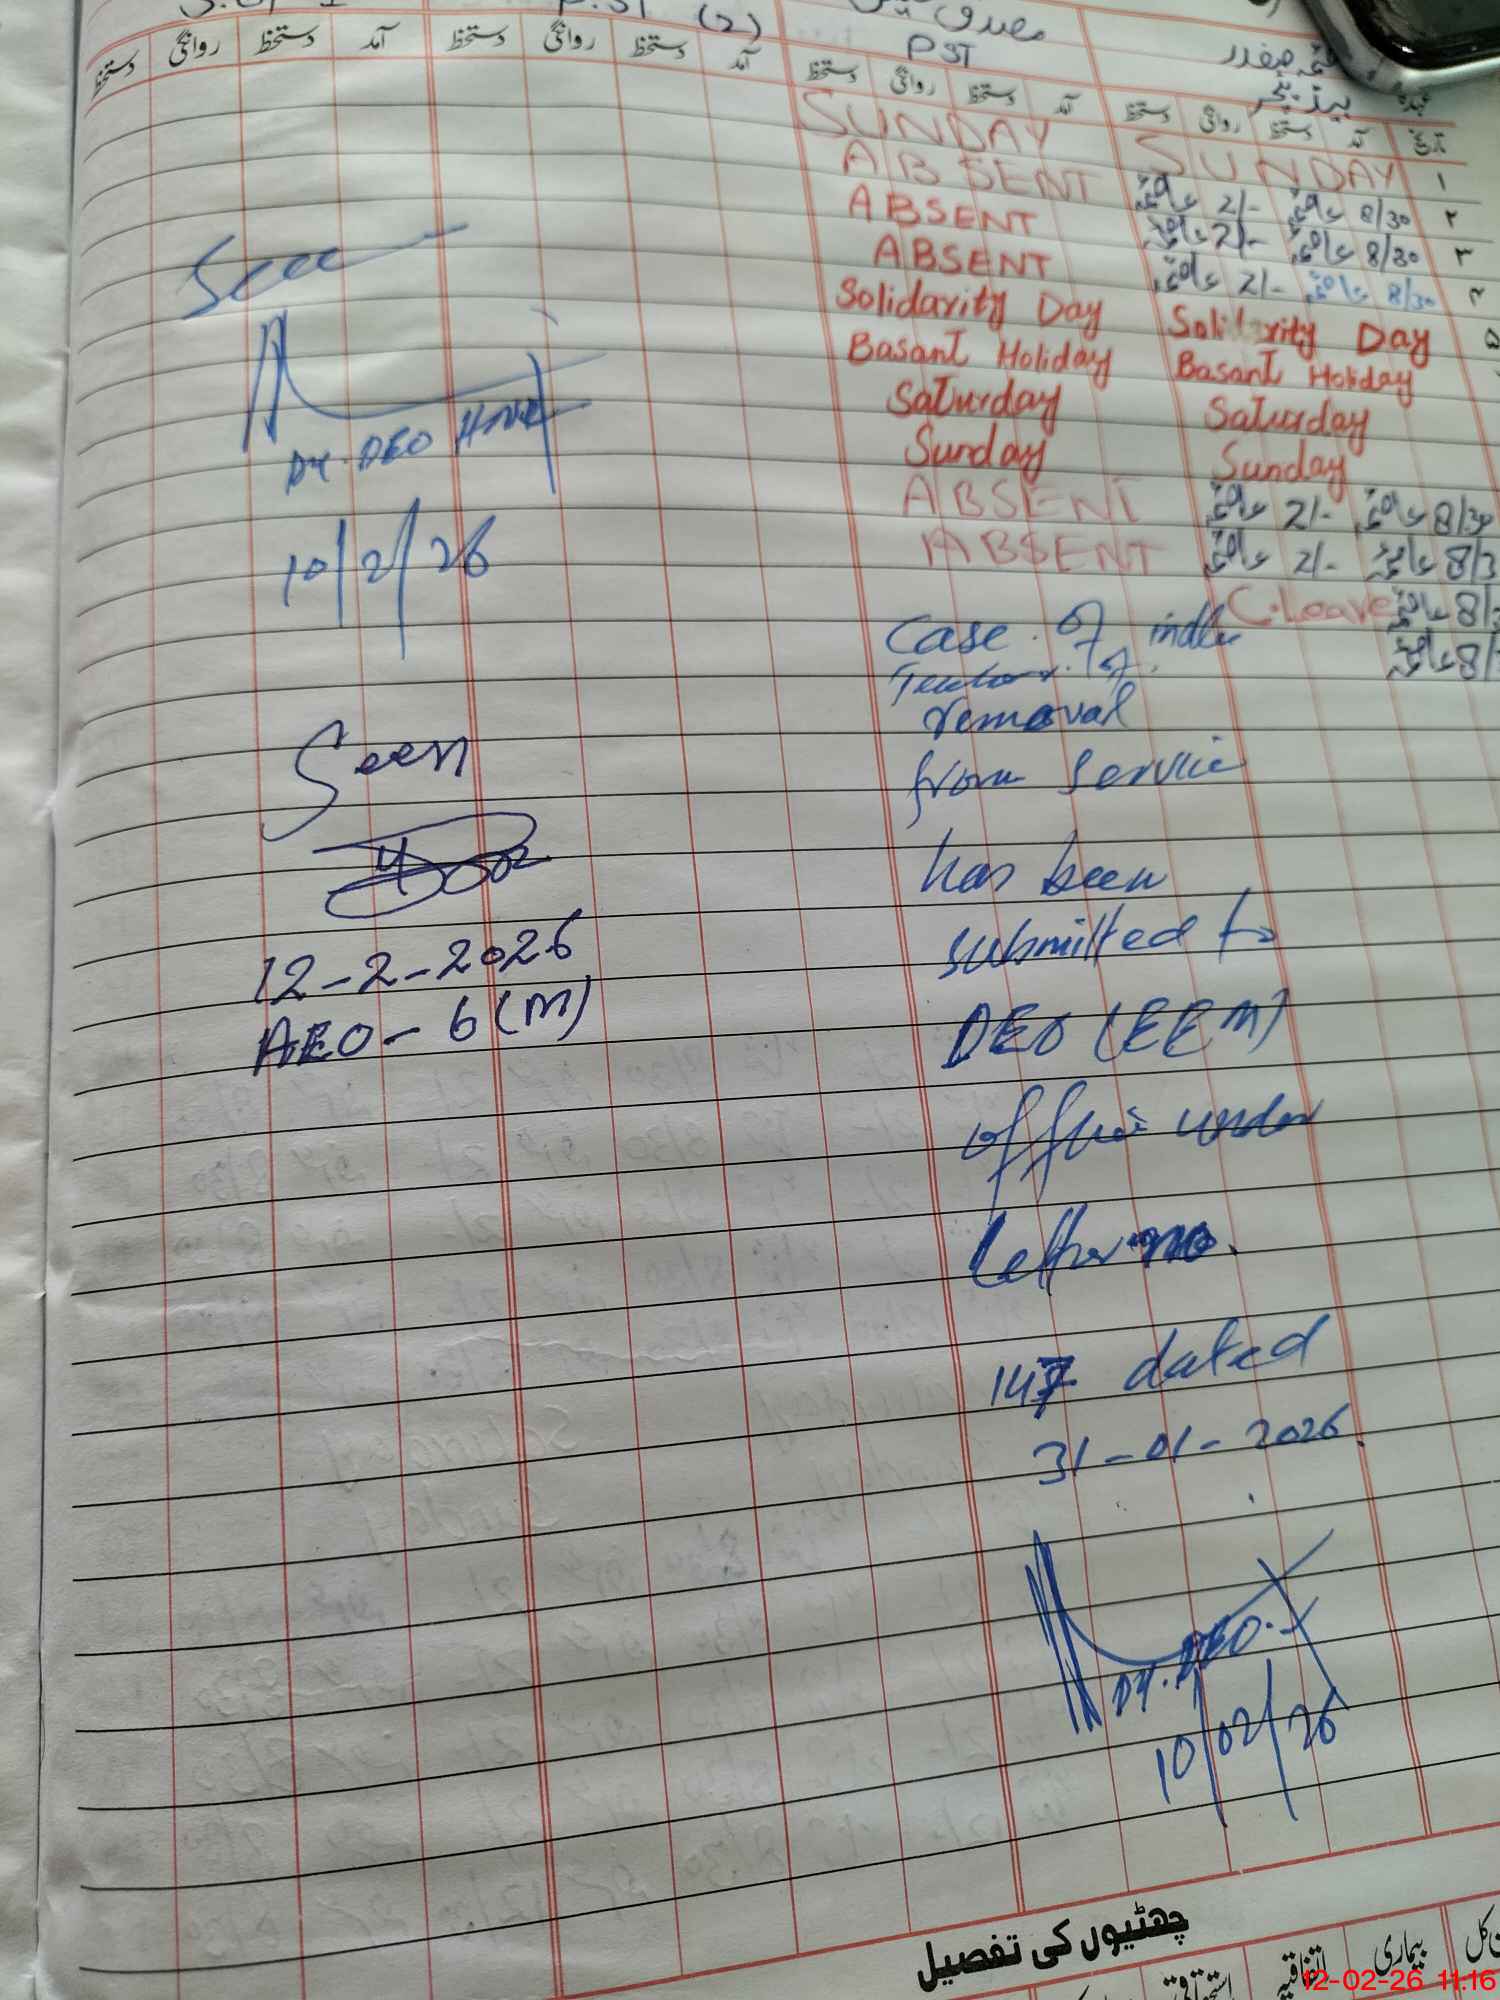 P.ST (2)
PST
صفدر
ہیڈ ٹیچر
عہدہ
دستخط روانگی دستخط آمد دستخط روانگی دستخط آمد دستخط روانگی دستخط آمد دستخط روانگی دستخط آمد تاریخ
SUNDAY SUNDAY ۱
ABSENT 2/- 8/30 ۲
ABSENT 2/- 8/30 ۳
ABSENT 2/- 8/30 ۴
Solidarity Day Solidarity Day ۵
Basant Holiday Basant Holiday
Saturday Saturday
Sunday Sunday
ABSENT 2/- 8/30
ABSENT 2/- 8/3
C.Leave 8/3
8/
Seen
Dy. DEO
10/2/26
Seen
12-2-2026
AEO-6(M)
Case of
removal
from service
has been
submitted to
DEO (EEM)
office under
letter no.
147 dated
31-01-2026.
Dy. DEO.
10/02/26
چھٹیوں کی تفصیل
کل بیماری اتفاقیہ استحقاقی
12-02-26 11:16